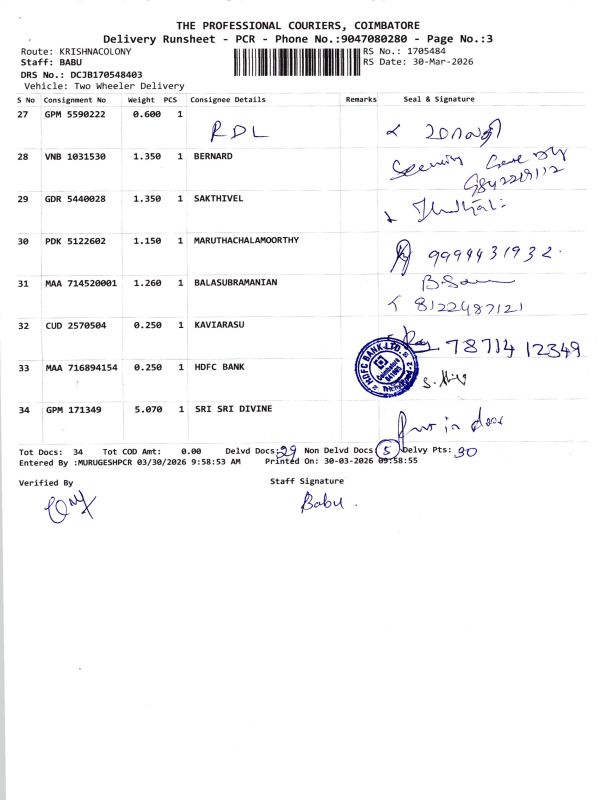 THE PROFESSIONAL COURIERS, COIMBATORE
Delivery Runsheet - PCR - Phone No.:9047080280 - Page No.:3
Route: KRISHNACOLONY RS No.: 1705484
Staff: BABU RS Date: 30-Mar-2026
DRS No.: DCJB170548403
Vehicle: Two Wheeler Delivery
S No Consignment No Weight PCS Consignee Details Remarks Seal & Signature
27 GPM 5590222 0.600 1
RDL
28 VNB 1031530 1.350 1 BERNARD
Security
9842219112
29 GDR 5440028 1.350 1 SAKTHIVEL
30 PDK 5122602 1.150 1 MARUTHACHALAMOORTHY
9994431932.
31 MAA 714520001 1.260 1 BALASUBRAMANIAN
8122487121
32 CUD 2570504 0.250 1 KAVIARASU
78714 12349
33 MAA 716894154 0.250 1 HDFC BANK
HDFC BANK LTD.
Coimbatore
34 GPM 171349 5.070 1 SRI SRI DIVINE
in door
Tot Docs: 34 Tot COD Amt: 0.00 Delvd Docs: 29 Non Delvd Docs: 5 Delvy Pts: 30
Entered By :MURUGESHPCR 03/30/2026 9:58:53 AM Printed On: 30-03-2026 09:58:55
Verified By Staff Signature
Babu.